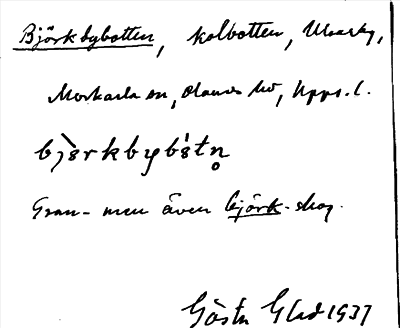 Björkbybotten, kolbotten, Ununby,
Morkarla sn, Olands hd, Upps. l.
bjʹörkbybòtn̥
Gran- men även björk-skog.
Gösta Glad 1937